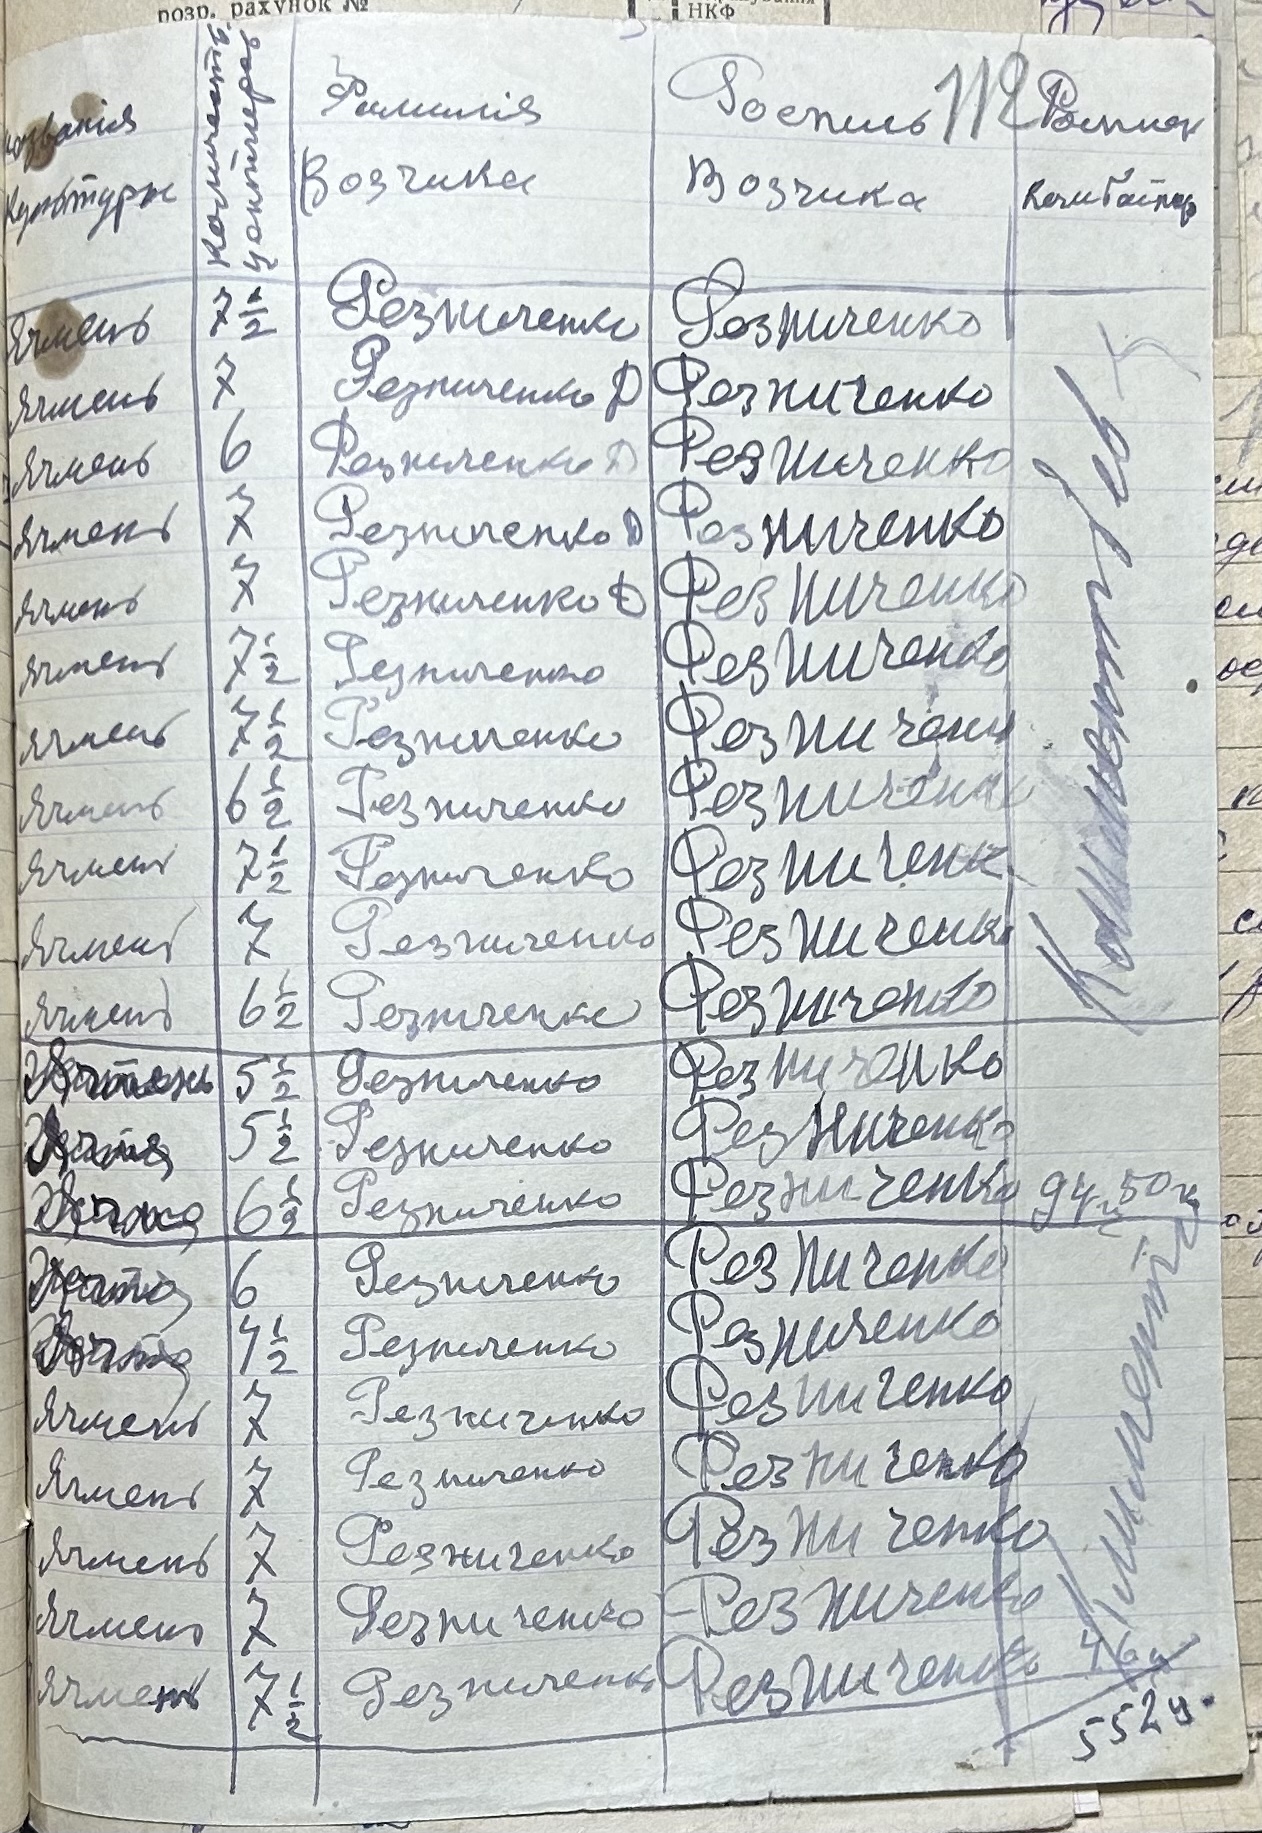 розр. рахунок №
НКФ
названія Количеств. Фамилія Роспись Роспись
Культури центнеров Возчика Возчика Комбайнер
Ячмень 7 1/2 Резниченко Резниченко
Ячмень 7 Резниченко Д Резниченко
Ячмень 6 Резниченко Д Резниченко
Ячмень 7 Резниченко Д Резниченко
Ячмень 7 Резниченко Д Резниченко
Ячмень 7 1/2 Резниченко Резниченко
Ячмень 7 1/2 Резниченко Резничен
Ячмень 6 1/2 Резниченко Резниченк
Ячмень 7 1/2 Резниченко Резниченк
Ячмень 7 Резниченко Резниченк
Ячмень 6 1/2 Резниченко Резниченко
5 1/2 Резниченко Резниченко
5 1/2 Резниченко Резниченко
6 1/2 Резниченко Резниченко 94ц 50к
6 Резниченко Резниченко
7 1/2 Резниченко Резниченко
Ячмень 7 Резниченко Резниченко
Ячмень 7 Резниченко Резниченко
Ячмень 7 Резниченко Резниченко
Ячмень 7 Резниченко Резниченко
Ячмень 7 1/2 Резниченко Резниченко
552ц.